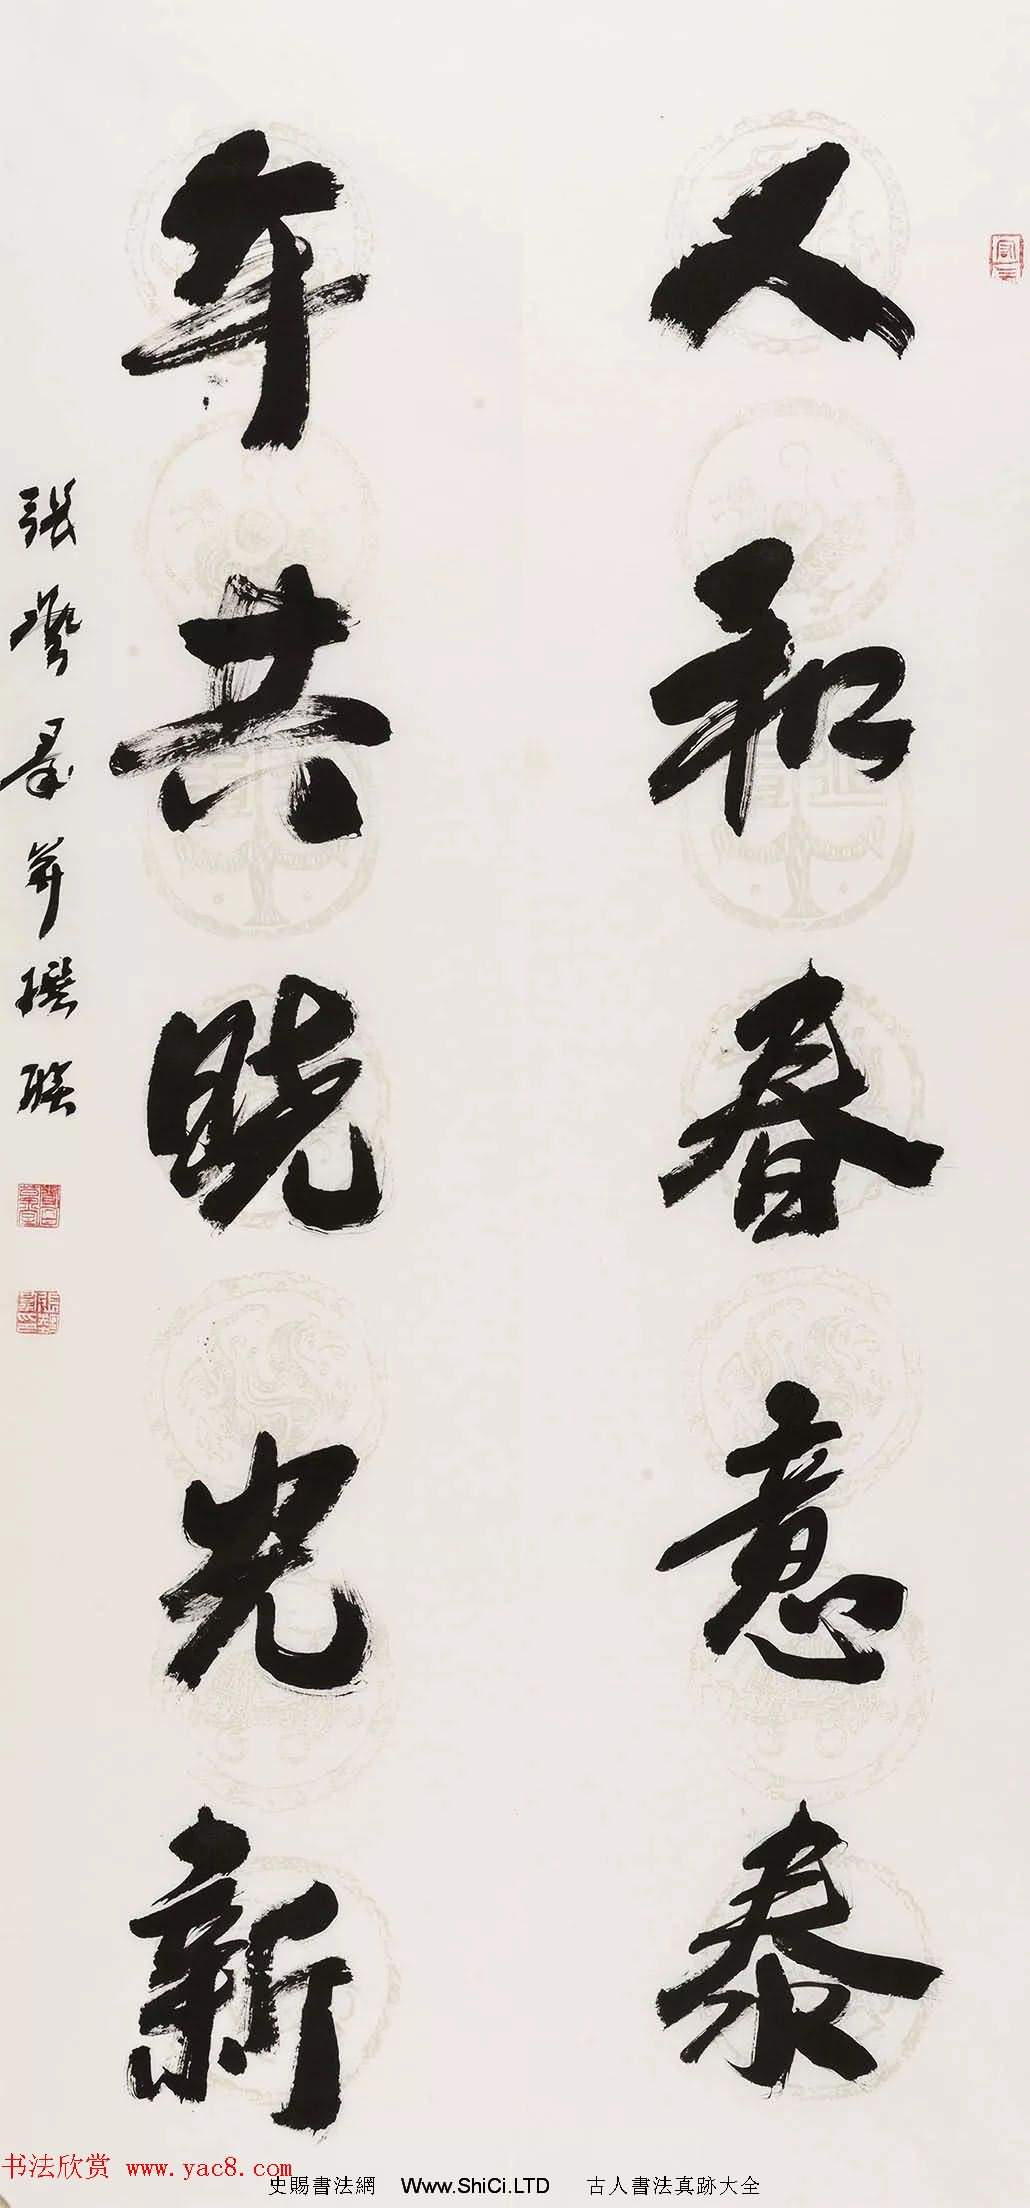 人和春意泰
年共曉光新
張艺群並撰聯
书法欣赏 www.yac8.com
史賜書法網 Www.ShiCi.LTD 古人書法真跡大全